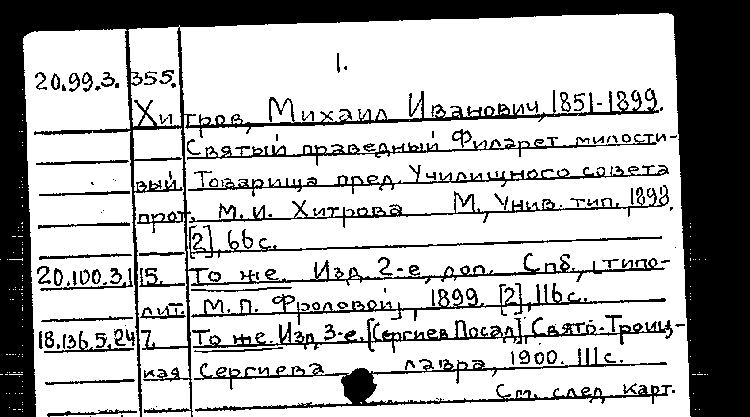 1.
20.99.3.355.
Хитров, Михаил Иванович, 1851-1899.
Святый праведный Филарет милости-
вый. Товарища пред. Училищного совета
прот. М.И. Хитрова М., Унив. тип., 1898.
[2], 66 с.
20.100.3.115. То же. Изд. 2-е, доп. Спб., [типо-
лит. М.П. Фроловой], 1899. [2], 116 с.
18.136.5.247. То же. Изд. 3-е. [Сергиев Посад], Свято-Троиц-
кая Сергиева лавра, 1900. 111 с.
См. след. карт.